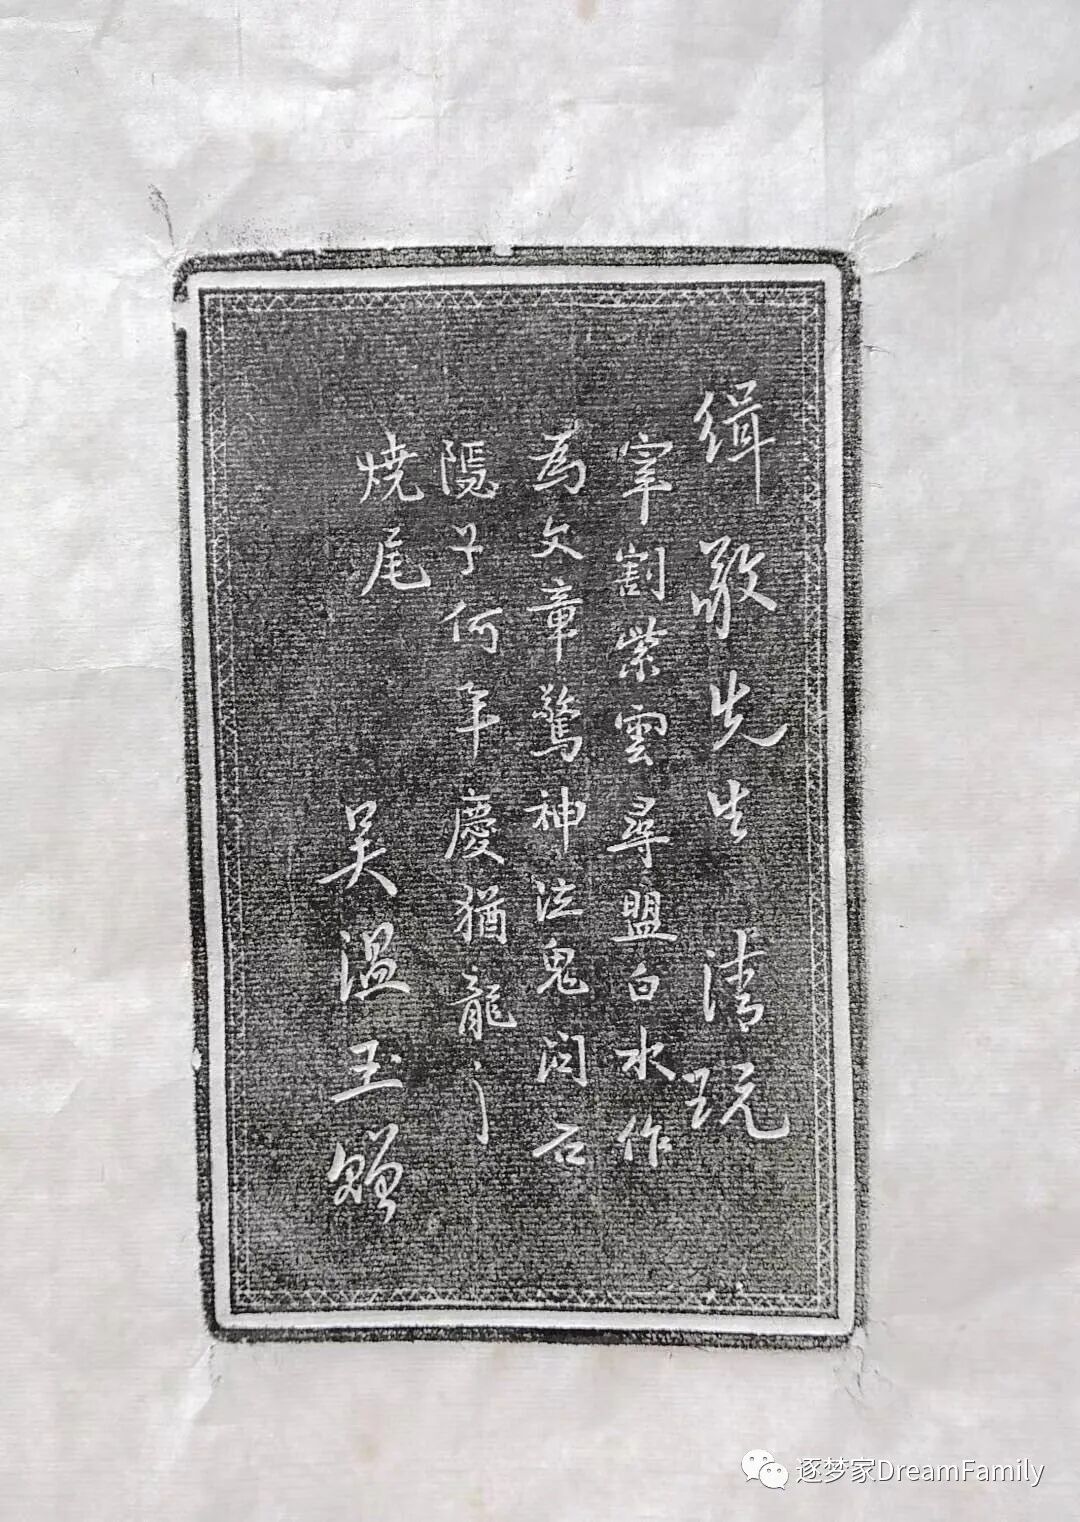 緝敬先生清玩
宰割紫雲尋盟白水作
為文章驚神泣鬼問石
隱子何年慶猶龍之
燒尾
吴温玉贈
逐梦家DreamFamily